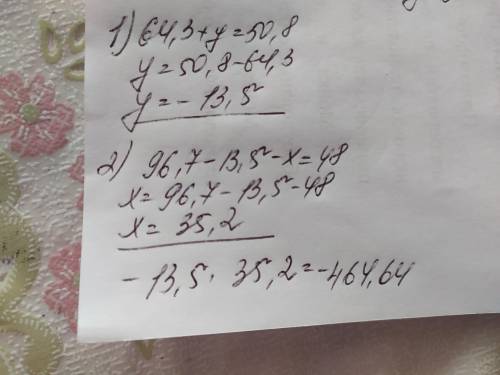 1) 64,3+y=50,8
y=50,8-64,3
y=-13,5
2) 96,7-13,5-x=48
x=96,7-13,5-48
x=35,2
-13,5·35,2=-464,64